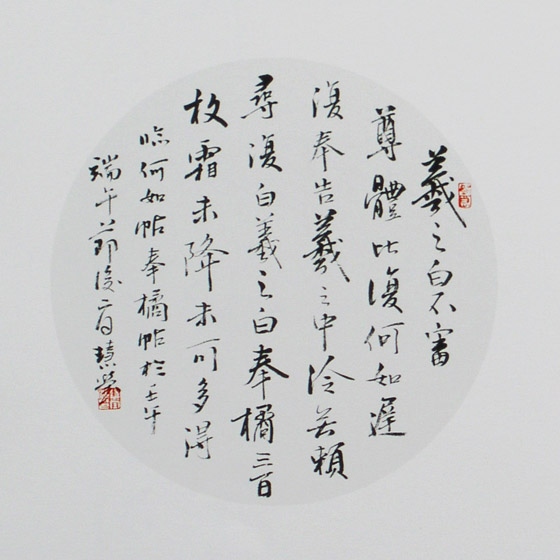 羲之白不審
尊體比復何如遲
復奉告羲之中冷無賴
尋復白羲之白奉橘三百
枚霜未降未可多得
臨何如帖奉橘帖於壬午
端午節後二日